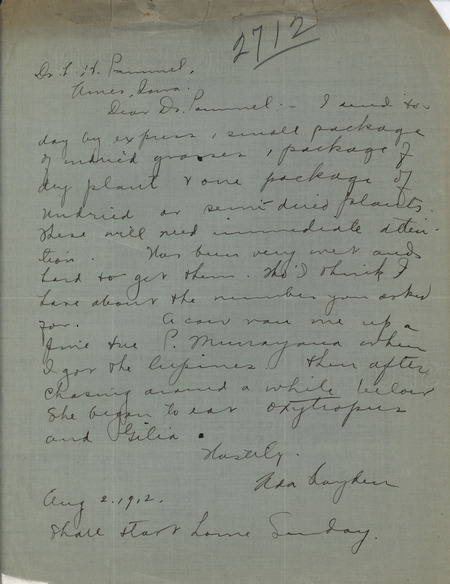 2712
Dr. L. H. Pammel,
Ames, Iowa.
Dear Dr. Pammel:- I send to-
day by express, 1 small package
of undried grasses, 1 package of
dry plant & one package of
undried or semi-dried plants.
These will need immediate atten-
tion. Has been very wet and
hard to get them. Tho' I think I
have about the number you asked
for. A cow ran me up a
pine tree P. Murrayana when
I got the lupines then after
chasing around a while below
she began to eat oxytropis
and Gilia.
Hastily.
Ada Hayden
Aug 2. 1912.
Shall start home Sunday.